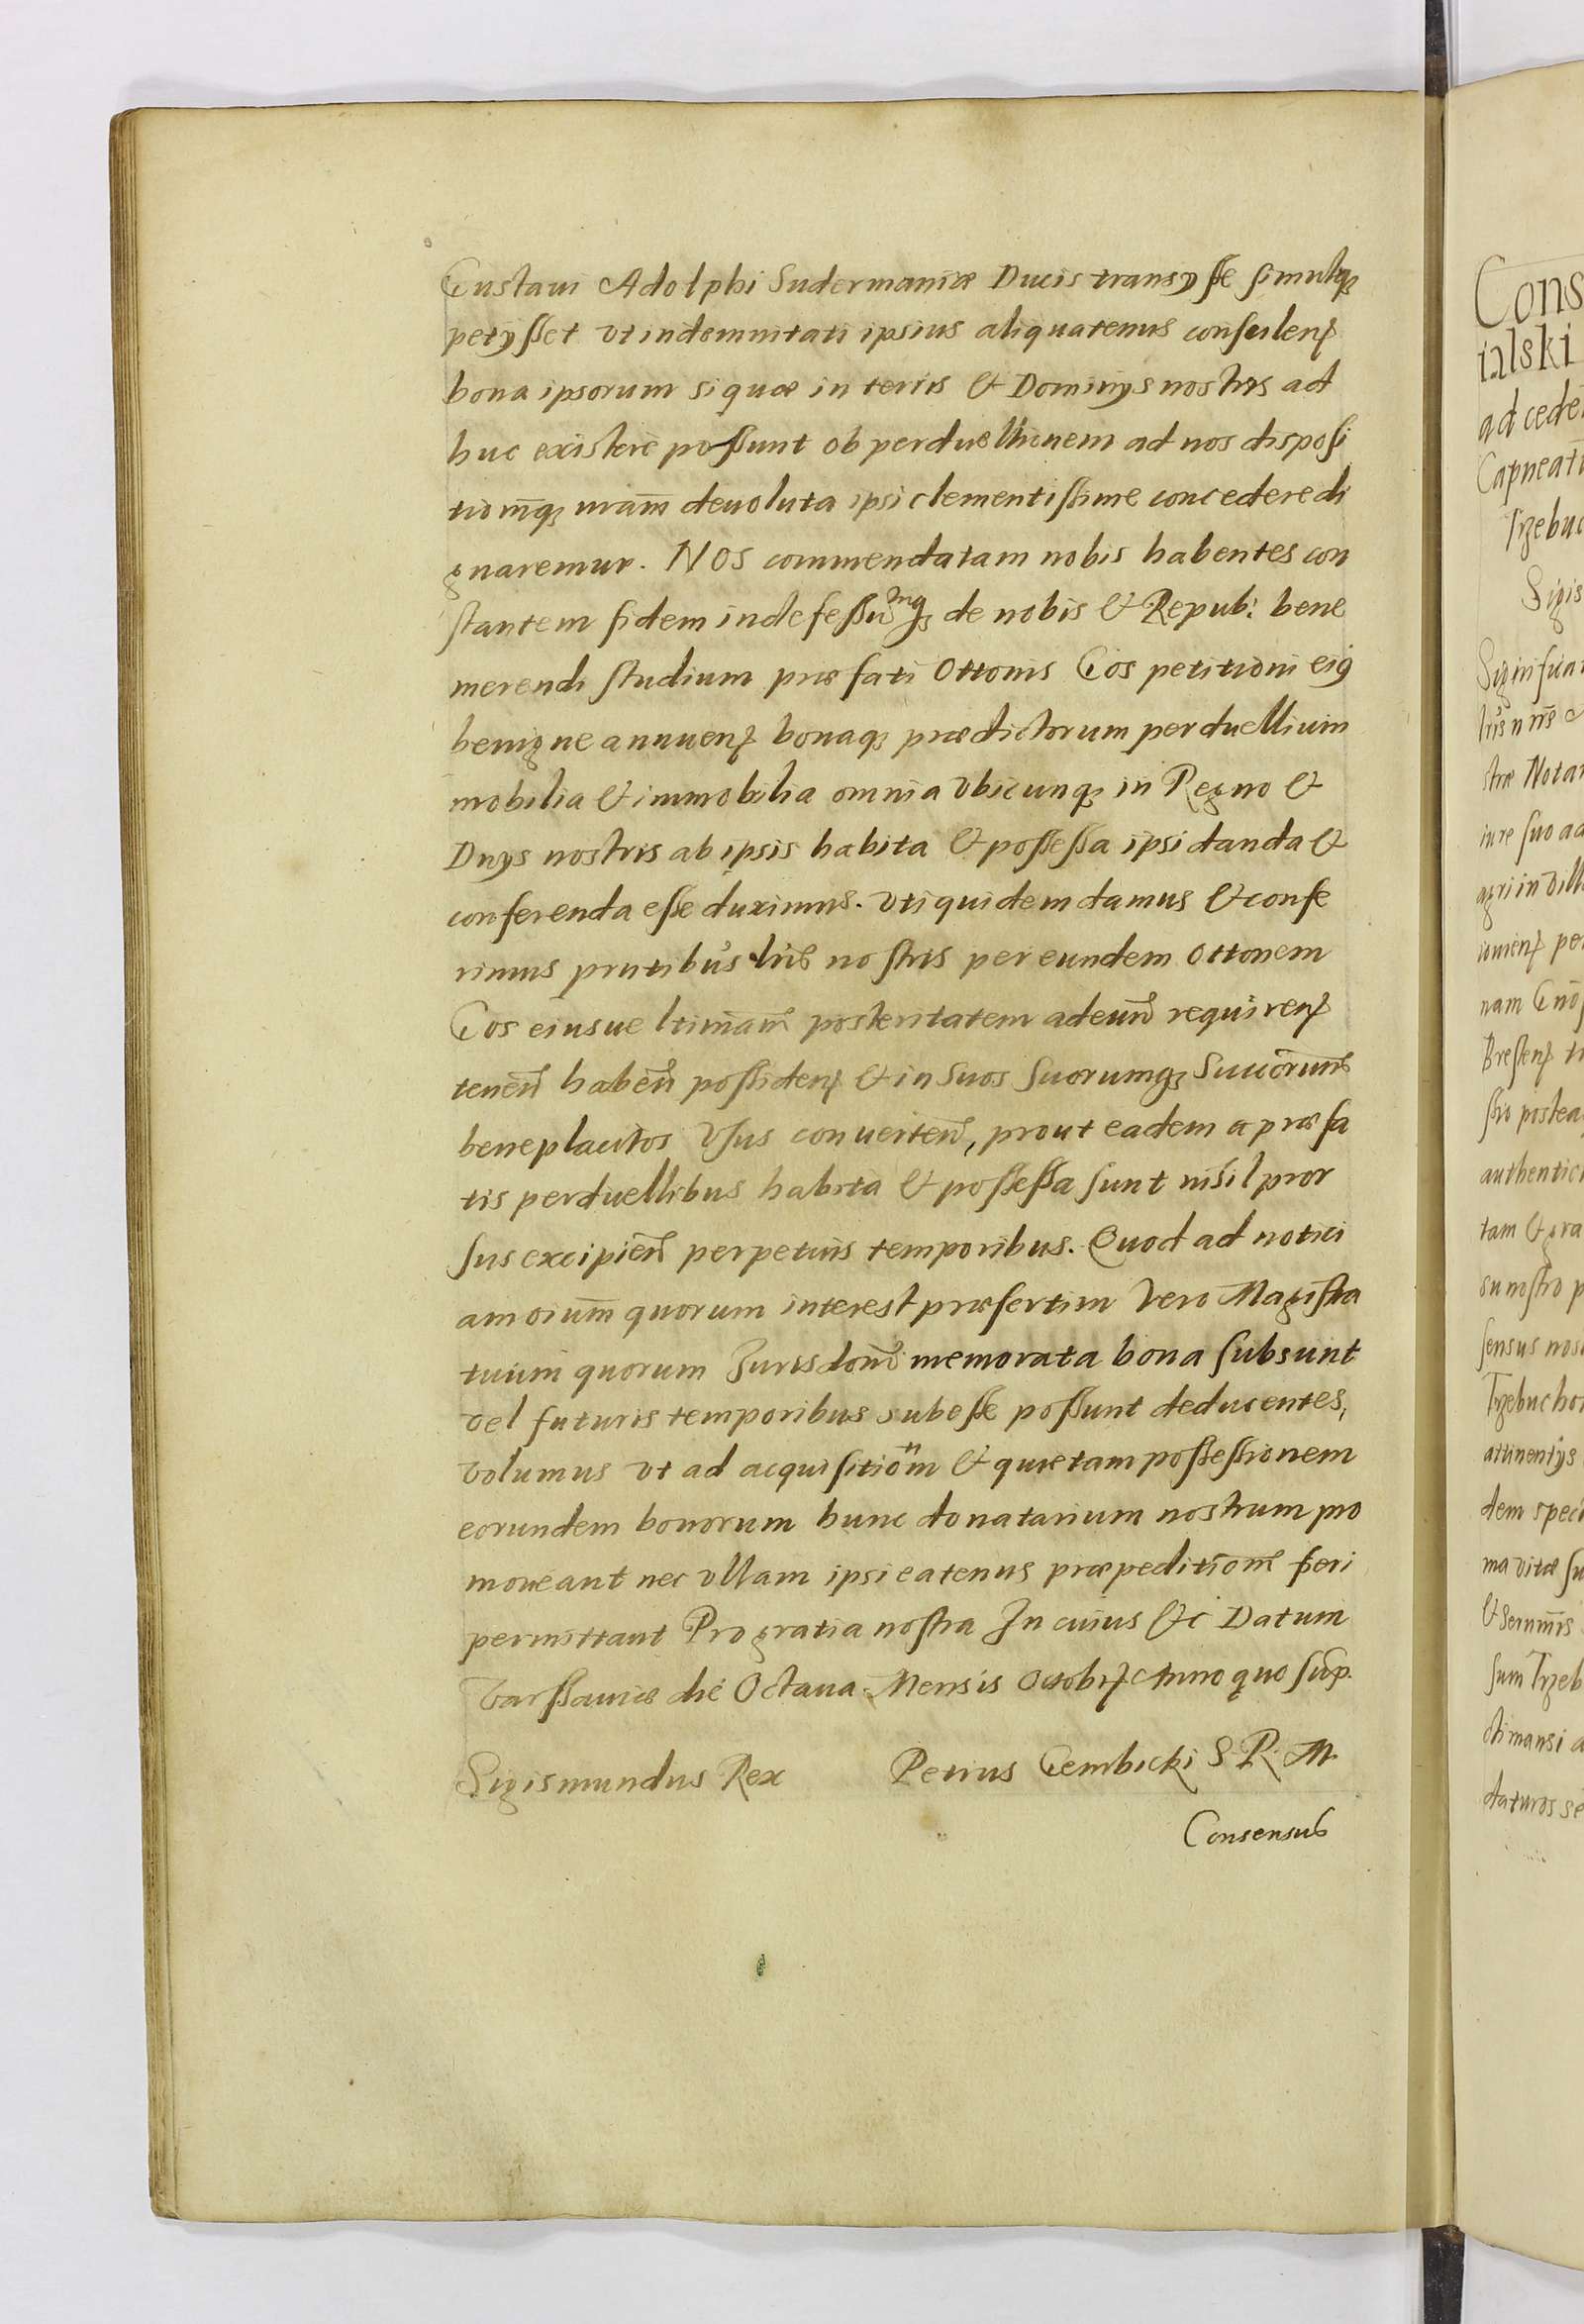 Gustaui Adolphi Sudermaniæ Ducis transysse simulq3
petysset vt indemnitati ipsius aliquatenus consulen
bona ipsorum si quæ in terris & Dominys nostris ad
huc existere possunt ob perduellionem ad nos disposi
tionq3 nram deuoluta ipsi clementissime concedere di
gnaremur. NOS commendatam nobis habentes con
stantem fidem indefessumq3 de nobis & Repub: bene
merendi studium præfati Ottonis Gos petitioni ei9
benigne annuen bonaq3 prædictorum perduellium
mobilia & immobilia omnia vbicunq3 in Regno &
Dnys nostris ab ipsis habita & possessa ipsi danda &
conferenda esse duximus. vti quidem damus & confe
rimus pntibus lris nostris per eundem Ottonem
Gos eiusue ltimam posteritatem adeun requiren
tenen haben possiden & in suos suorumq3 succorum
beneplacitos vsus conuerten, prout eadem a præfa
tis perduellibus habita & possessa sunt nihil pror
sus excipien perpetuis temporibus. Quod ad notici
am oium quorum interest præsertim vero Magistra
tuum quorum Jurisdoni memorata bona subsunt
vel futuris temporibus subesse possunt deducentes,
volumus vt ad acquisitionem & quietam possessionem
eorundem bonorum hunc donatarium nostrum pro
moueant nec vllam ipsi eatenus præpeditionem fieri
permittant Pro gratia nostra In cuius &c Datum
Varssauiæ die Octaua Mensis Octobr Anno quo sup.
Sigismundus Rex Petrus Gembicki S. R. M.
Consensus
Cons
ialski
ad cede
Capneati
Trzebuc
Sigis
Sig in fuar
lris nris &
stræ Notar
iure suo ad
agri in vill
per
nam Gno
Bresten
ssio postea
authentic
tam & gra
su nostro p
sensus nos
Trzebuchow
attinentys
dem speci
ma vitæ su
sum Trzeb
mansi a
daturos se